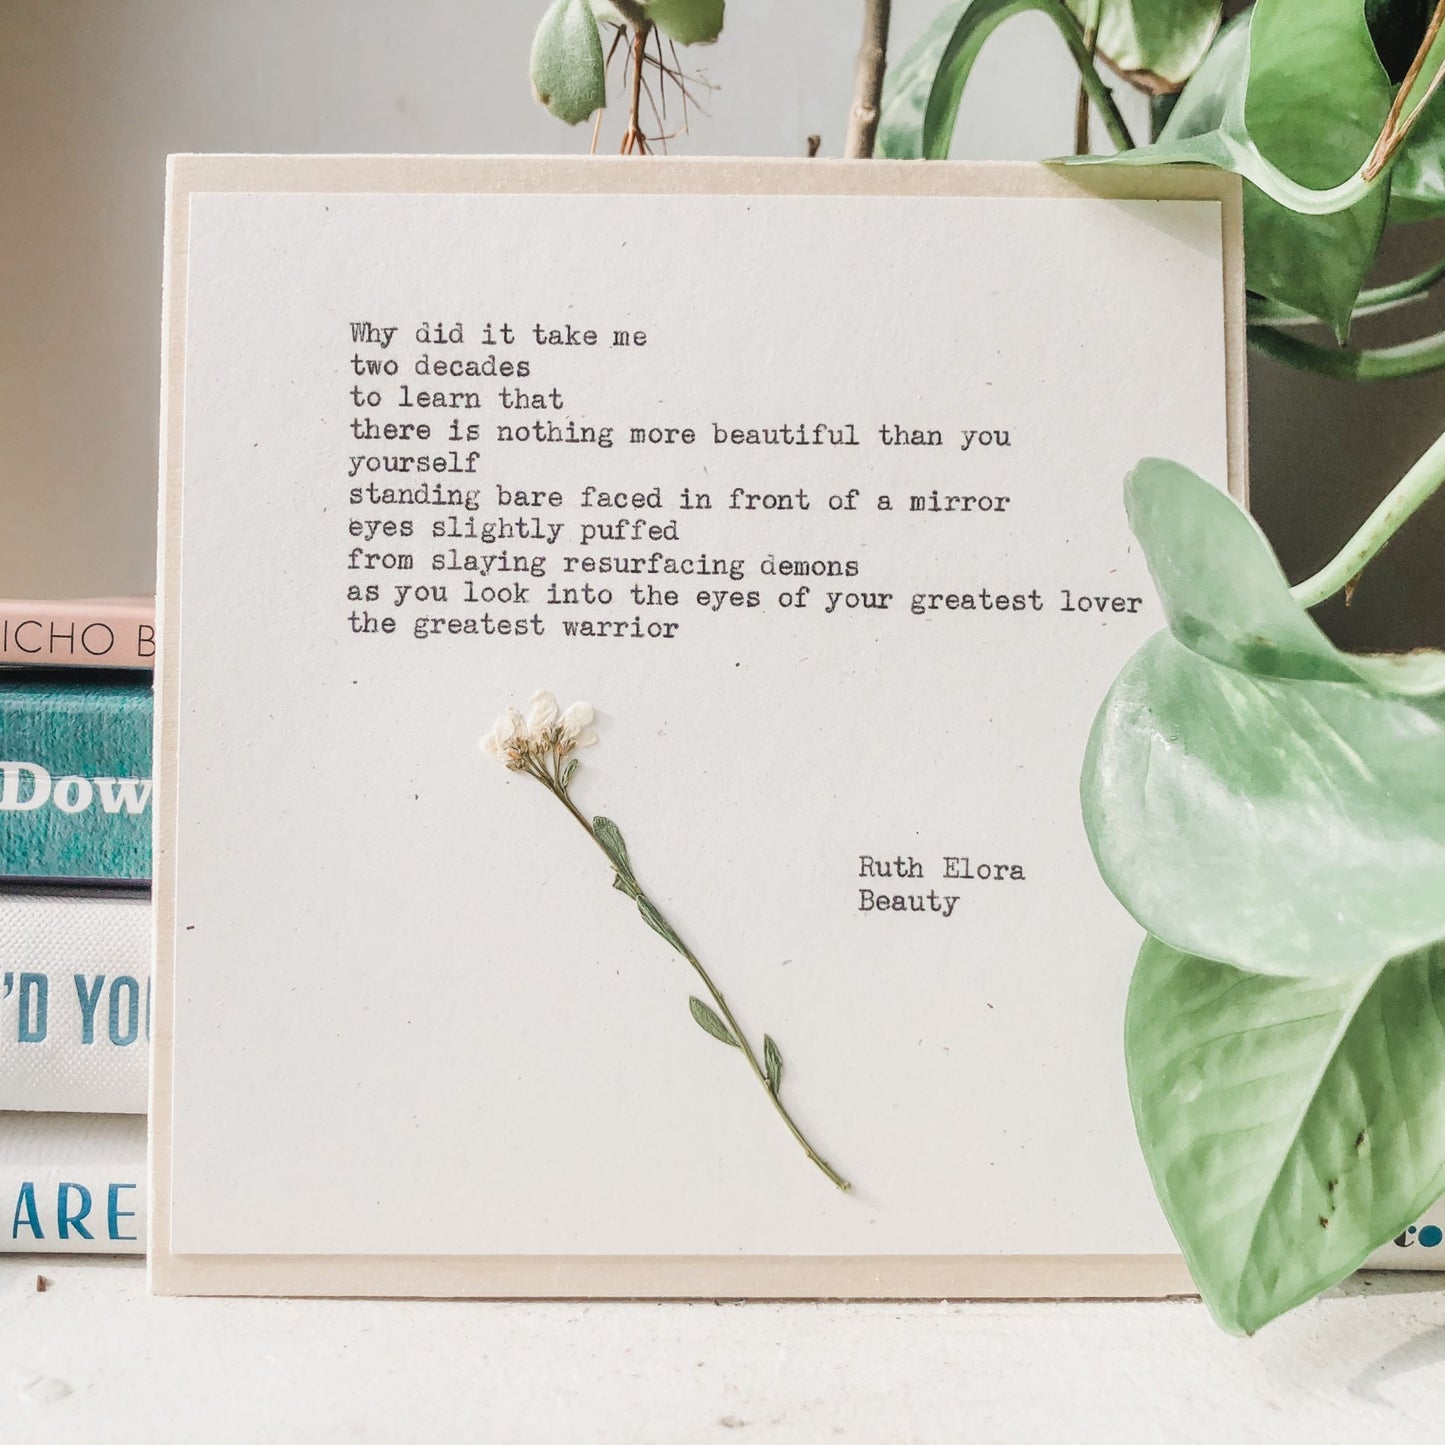 Why did it take me
two decades
to learn that
there is nothing more beautiful than you
yourself
standing bare faced in front of a mirror
eyes slightly puffed
from slaying resurfacing demons
as you look into the eyes of your greatest lover
the greatest warrior
Ruth Elora
Beauty
ICHO B
Dow
'D YOU
ARE
co